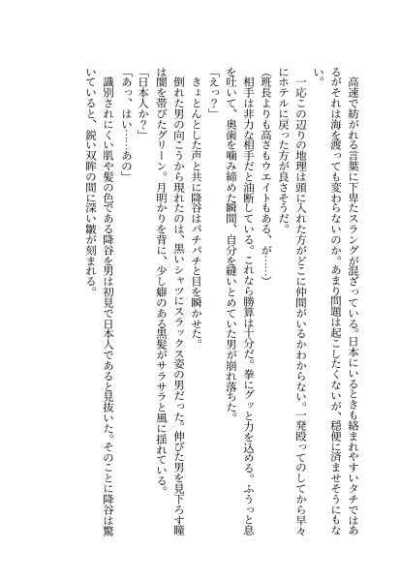 高速で紡がれる言葉に下卑たスラングが混ざっている。日本にいるときも絡まれやすいタチではあ
るがそれは海を渡っても変わらないのか。あまり問題は起こしたくないが、穏便に済ませそうにもな
い。
一応この辺りの地理は頭に入れた方がどこに仲間がいるかわからない。一発殴ってのしてから早々
にホテルに戻った方が良さそうだ。
(班長よりも高さもウエイトもある、が……)
相手は非力な相手だと油断している。これなら勝算は十分だ。拳にグッと力を込める。ふうっと息
を吐いて、奥歯を噛み締めた瞬間、自分を縫いとめていた男が崩れ落ちた。
「えっ?」
きょとんとした声と共に降谷はパチパチと目を瞬かせた。
倒れた男の向こうから現れたのは、黒いシャツにスラックス姿の男だった。伸びた男を見下ろす瞳
は闇を帯びたグリーン。月明かりを背に、少し癖のある黒髪がサラサラと風に揺れている。
「日本人か?」
「あっ、はい……あの」
識別されにくい肌や髪の色である降谷を男は初見で日本人であると見抜いた。そのことに降谷は驚
いていると、鋭い双眸の間に深い皺が刻まれる。